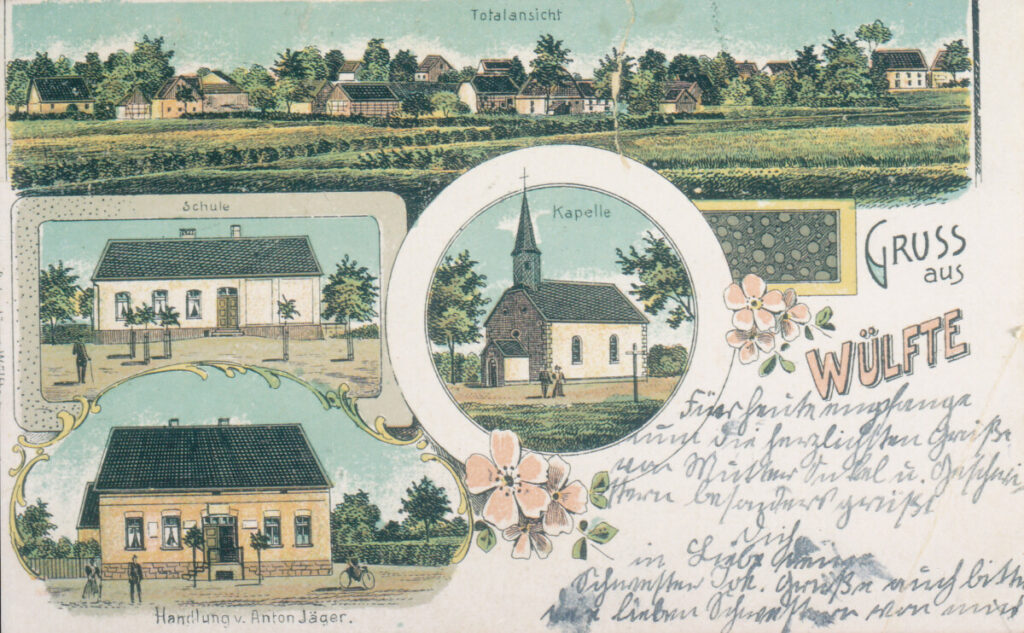 Totalansicht
Schule
Kapelle
GRUSS
aus
WÜLFTE
Handlung v. Anton Jäger.
Fürs heute empfange
nun die herzlichsten Grüße
von Mutter u. Geschwi-
stern besonders grüßt
Dich
in Liebe Deine
Schwester Grüße auch bitte
lieben Schwestern von mir